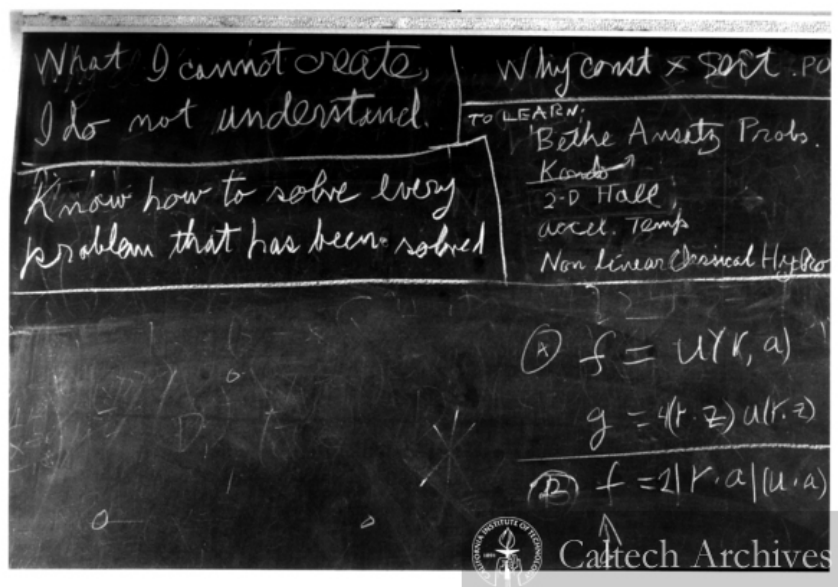 What I cannot create,
I do not understand.
Know how to solve every
problem that has been solved
Why const × sort . PO
TO LEARN:
Bethe Ansatz Probs.
Kondo
2-D Hall
accel. Temp
Non Linear Classical Hydro
(A) f = u(r, a)
g = 4(r·z) u(r.z)
(B) f = 2|r·a|(u·a)
CALIFORNIA INSTITUTE OF TECHNOLOGY
1891
Caltech Archives